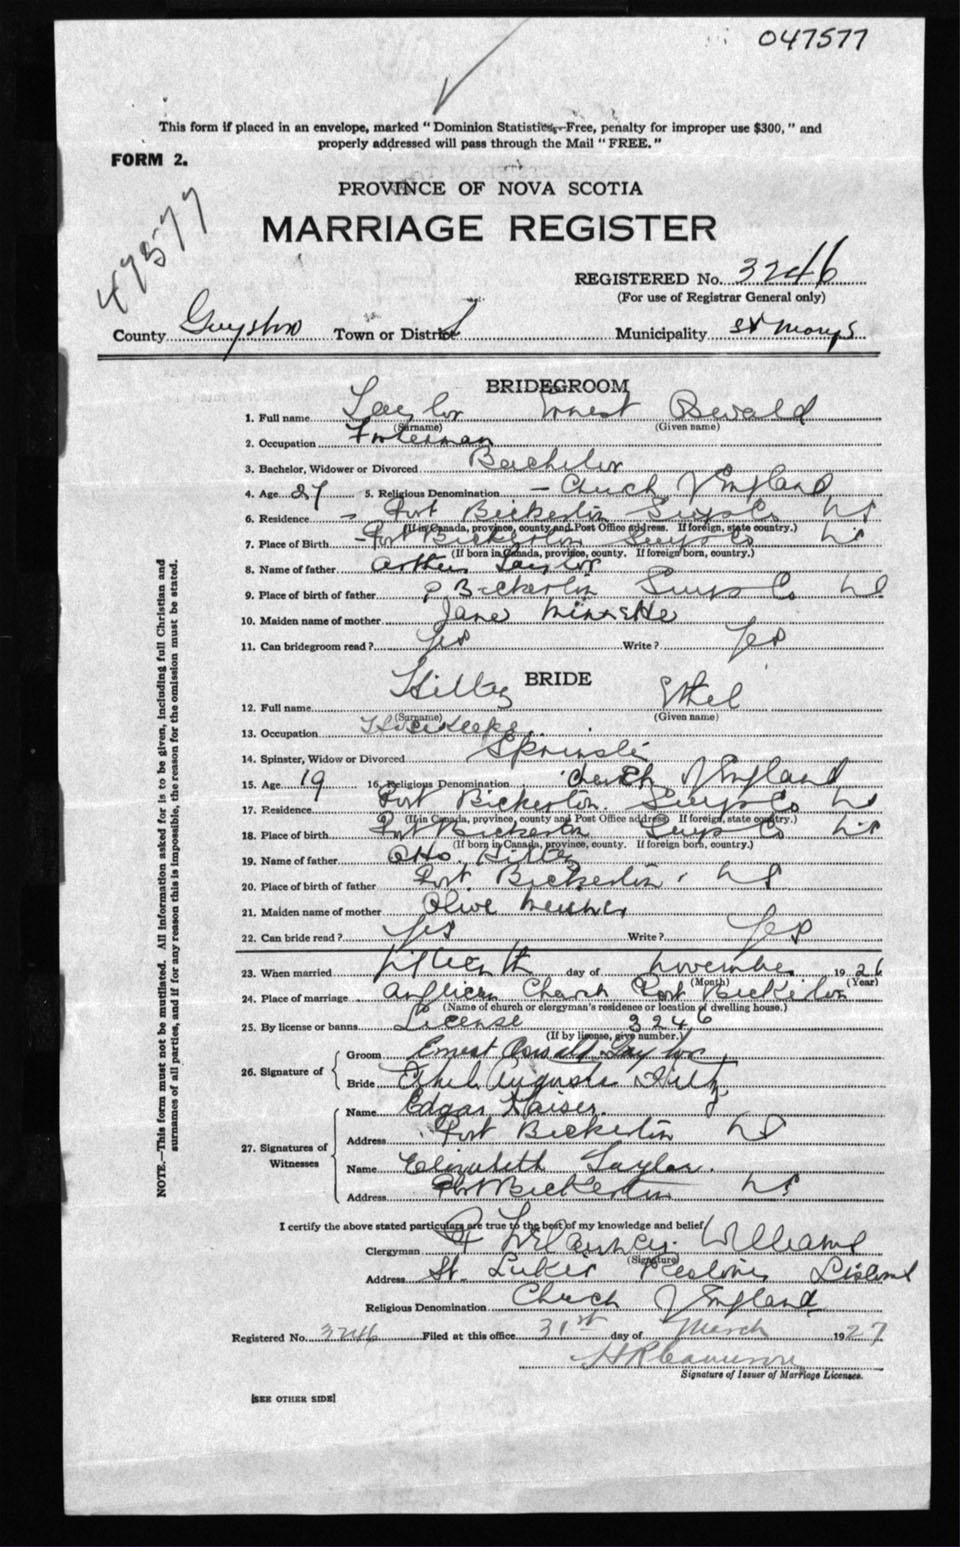 047577
This form if placed in an envelope, marked "Dominion Statistics,-Free, penalty for improper use $300," and
properly addressed will pass through the Mail "FREE."
FORM 2.
47577
PROVINCE OF NOVA SCOTIA
MARRIAGE REGISTER
REGISTERED No. 3246
(For use of Registrar General only)
County Guysboro Town or District Municipality St Marys
BRIDEGROOM
1. Full name Taylor Ernest Oswald
(Surname) (Given name)
2. Occupation Fisherman
3. Bachelor, Widower or Divorced Bachelor
4. Age 27 5. Religious Denomination - Church of England
6. Residence - Port Bickerton Guys Co NS
(If in Canada, province, county and Post Office address. If foreign, state country.)
7. Place of Birth - Port Bickerton Guys Co NS
(If born in Canada, province, county. If foreign born, country.)
8. Name of father Arthur Taylor
9. Place of birth of father P Bickerton Guys Co NS
10. Maiden name of mother Jane
11. Can bridegroom read? Yes Write? Yes
BRIDE
12. Full name Hiltz Ethel
(Surname) (Given name)
13. Occupation Housekeeper
14. Spinster, Widow or Divorced
15. Age 19 16. Religious Denomination Church of England
17. Residence Port Bickerton Guys Co NS
(If in Canada, province, county and Post Office address. If foreign, state country.)
18. Place of birth Port Bickerton Guys Co NS
(If born in Canada, province, county. If foreign born, country.)
19. Name of father Otto Hiltz
20. Place of birth of father Port Bickerton, NS
21. Maiden name of mother Olive
22. Can bride read? Yes Write? Yes
23. When married fifteenth day of November 1926
(Month) (Year)
24. Place of marriage Anglican Church Port Bickerton
(Name of church or clergyman's residence or location of dwelling house.)
25. By license or banns License 3246
(If by license, give number.)
26. Signature of Groom Ernest Oswald Taylor
Bride Ethel Augusta Hiltz
27. Signatures of Witnesses Name Edgar Kaiser.
Address Port Bickerton NS
Name Elizabeth Taylor.
Address Port Bickerton NS
I certify the above stated particulars are true to the best of my knowledge and belief
Clergyman Williams
(Signature)
Address St. Lukes Liscomb
Religious Denomination Church of England
Registered No. 3246 Filed at this office 31st day of March 1927
H R Cameron
Signature of Issuer of Marriage Licenses.
[SEE OTHER SIDE]
NOTE.—This form must not be mutilated. All information asked for is to be given, including full Christian and
surnames of all parties, and if for any reason this is impossible, the reason for the omission must be stated.